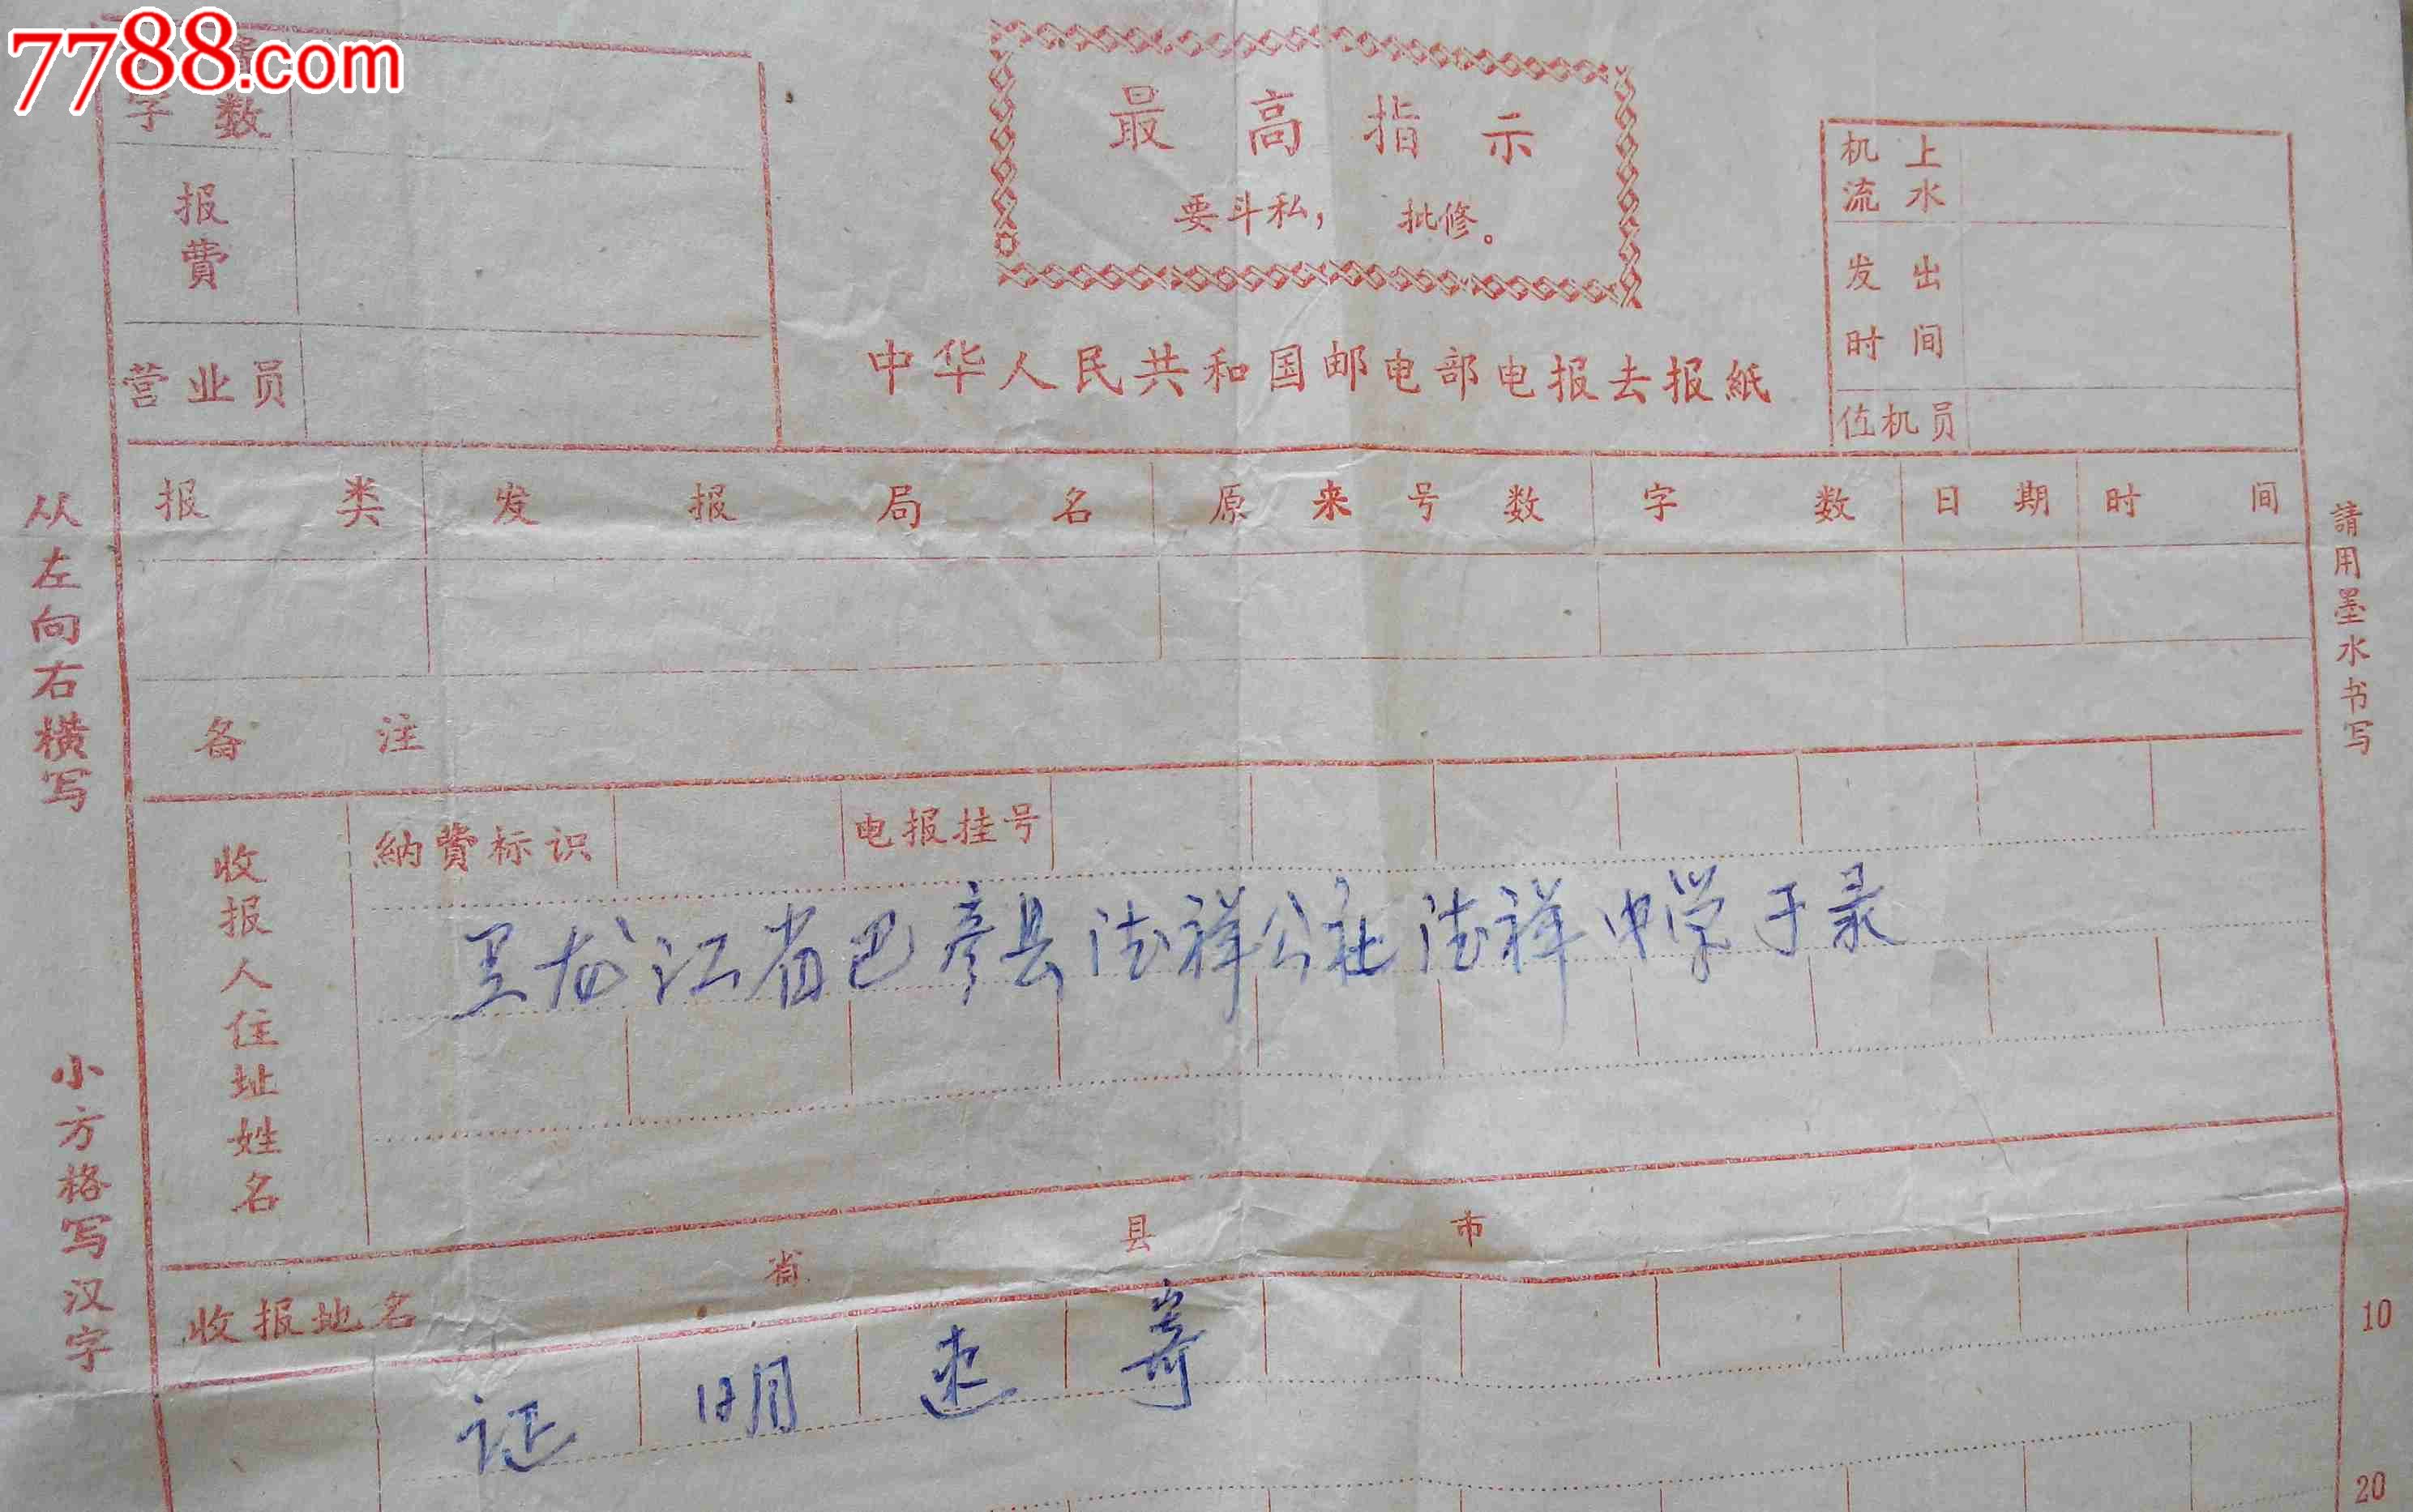 7788.com
字数
报費
营业员
最高指示
要斗私， 批修。
中华人民共和国邮电部电报去报紙
机上流水
发出时间
值机员
报类 发报局名 原来号数 字数 日期 时间
备注
从左向右横写
小方格写汉字
請用墨水书写
納費标识 电报挂号
收报人住址姓名
黑龙江省巴彦县德祥公社德祥中学于录
收报地名 省 县 市
证明速寄
10
20